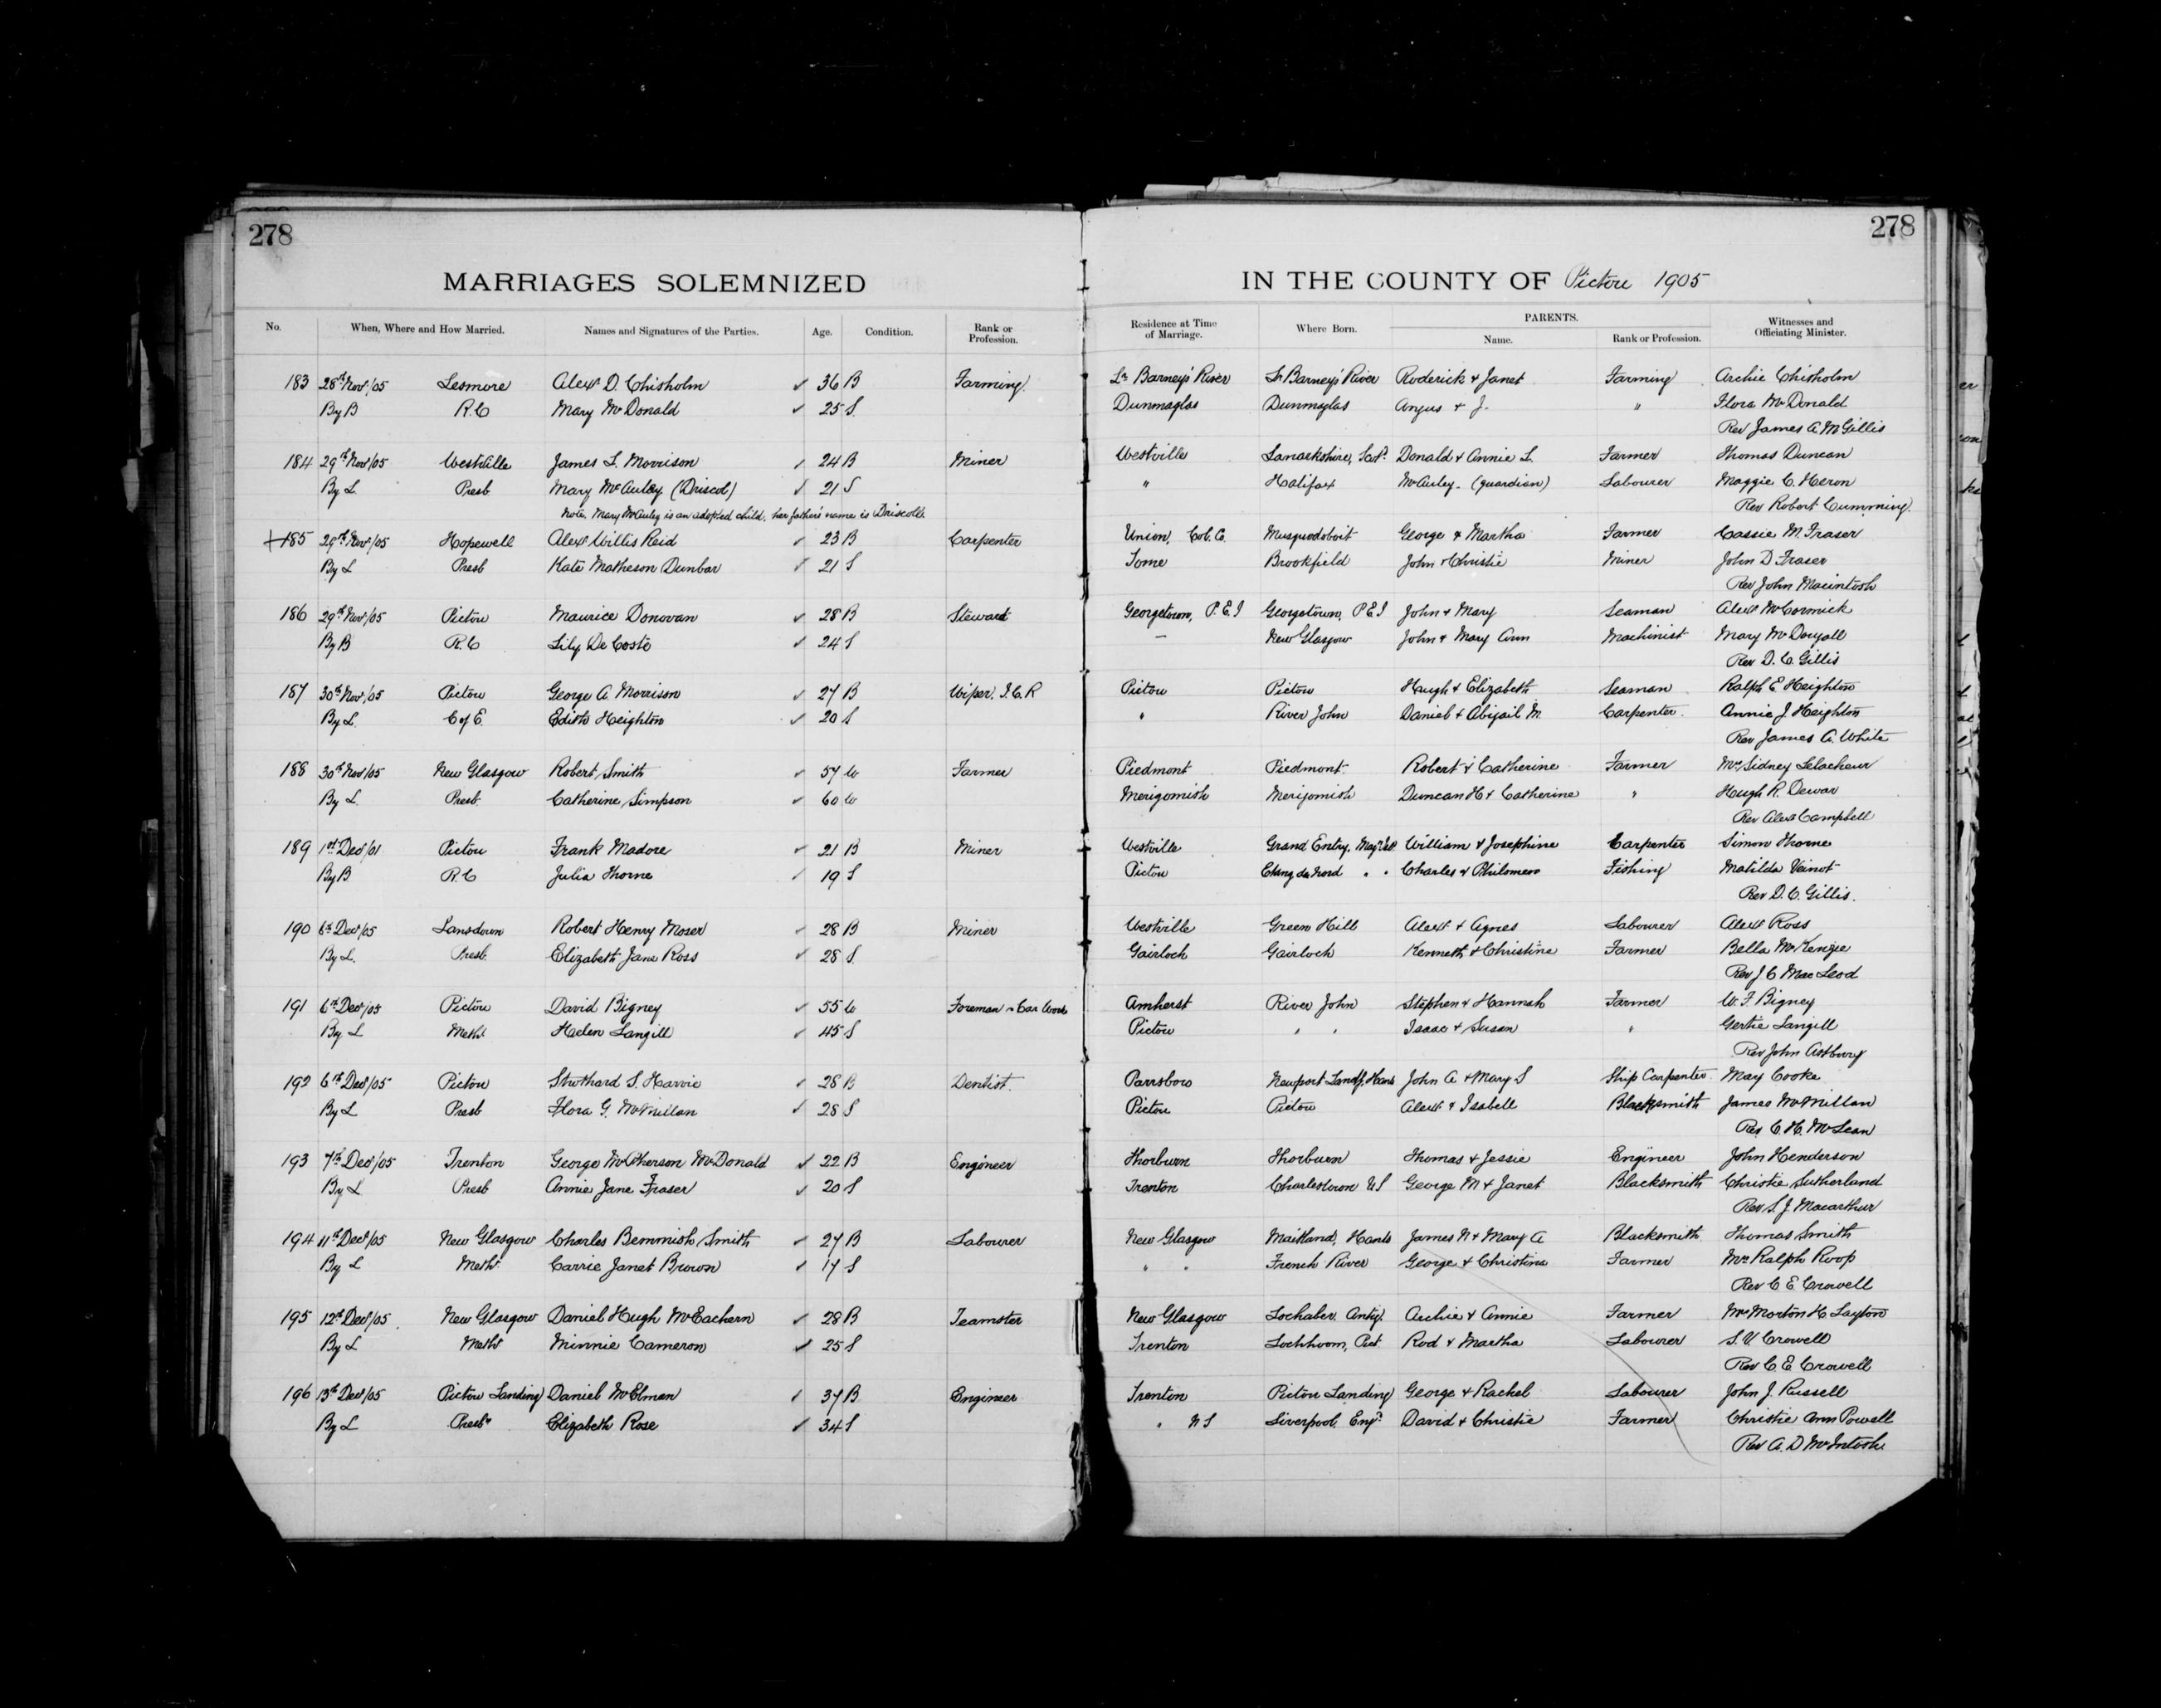 278
278
MARRIAGES SOLEMNIZED
IN THE COUNTY OF Pictou 1905
No. When, Where and How Married. Names and Signatures of the Parties. Age. Condition. Rank or Profession. Residence at Time of Marriage. Where Born. PARENTS. Name. Rank or Profession. Witnesses and Officiating Minister.
183 28th Nov/05 Lesmore Alexr D. Chisholm ✓ 36 B Farming Lr Barney's River Lr Barney's River Roderick & Janet Farming Archie Chisholm
By B R.C Mary McDonald ✓ 25 S Dunmaglas Dunmaglas Angus & J. " Flora McDonald
Rev James A. McGillis
184 29th Nov/05 Westville James L. Morrison ✓ 24 B Miner Westville Lanarkshire, Scot. Donald & Annie L. Farmer Thomas Duncan
By L. Presb Mary McAuley (Driscol) ✓ 21 S " Halifax McAuley - (guardian) Labourer Maggie C. Heron
Note. Mary McAuley is an adopted child, her father's name is Driscoll. Rev Robert Cumming.
185 29th Nov/05 Hopewell Alexr Willis Reid ✓ 23 B Carpenter Union, Col. Co. Musquodoboit George & Martha Farmer Cassie M. Fraser
By L Presb Kate Matheson Dunbar ✓ 21 S Brookfield John & Christie Miner John D Fraser
Rev John Macintosh
186 29th Nov/05 Pictou Maurice Donovan ✓ 28 B Steward Georgetown, P.E.I Georgetown, P E I John & Mary Seaman Alexr McCormick
By B R.C Lily De Coste ✓ 24 S — New Glasgow John & Mary Ann Machinist Mary McDougall
Rev D. C. Gillis
187 30th Nov/05 Pictou George A. Morrison ✓ 27 B Wiper. I.C.R Pictou Pictou Hugh & Elizabeth Seaman Ralph E Heighton
By L. C of E. Edith Heighton ✓ 20 S " River John Daniel & Abigail M. Carpenter. Annie J. Heighton
Rev James A. White
188 30th Nov/05 New Glasgow Robert Smith ✓ 57 W Farmer Piedmont Piedmont Robert & Catherine Farmer Mrs Sidney Lelacheur
By L. Presb. Catherine Simpson ✓ 60 W Merigomish Merigomish Duncan H & Catherine " Hugh R. Dewar
Rev Alexr Campbell
189 1st Dec/01 Pictou Frank Madore ✓ 21 B Miner Westville Grand Entry, Magn Isl. William & Josephine Carpenter Simon Thorne
By B R.C Julia Thorne ✓ 19 S Pictou Etang du Nord " " Charles & Philomene Fishing Matilda Veinot
Rev D. C. Gillis.
190 6th Dec/05 Lansdown Robert Henry Moser ✓ 28 B Miner Westville Green Hill Alexr & Agnes Labourer Alexr Ross
By L. Presb. Elizabeth Jane Ross ✓ 28 S. Gairloch Gairloch Kenneth & Christine Farmer Bella McKenzie
Rev J C MacLeod
191 6th Dec/05 Pictou David Bigney ✓ 55 W Foreman Car Works Amherst River John Stephen & Hannah Farmer W. F Bigney
By L Meth. Helen Langill ✓ 45 S Pictou " " Isaac & Susan " Gertie Langill
Rev John Astbury
192 6th Dec/05 Pictou Stuthard S. Harvie ✓ 28 B Dentist. Parrsboro Newport Landg, Hants John A & Mary S Ship Carpenter. May Cooke
By L Presb Flora G. McMillan ✓ 28 S Pictou Pictou Alexr & Isabell Blacksmith James McMillan
Rev C. H. McLean
193 7th Dec/05 Trenton George McPherson McDonald ✓ 22 B Engineer Thorburn Thorburn Thomas & Jessie Engineer John Henderson
By L Presb Annie Jane Fraser ✓ 20 S Trenton Charlestown US George M & Janet Blacksmith Christie Sutherland
Rev S. J. Macarthur
194 11th Dec/05 New Glasgow Charles Bemmish Smith ✓ 27 B Labourer New Glasgow Maitland, Hants James N & Mary A Blacksmith Thomas Smith
By L Meth. Carrie Janet Brown ✓ 17 S " " French River George & Christina Farmer Mrs Ralph Roop
Rev C E. Crowell
195 12th Dec/05 New Glasgow Daniel Hugh McEachern ✓ 28 B Teamster New Glasgow Lochaber, Antig. Archie & Annie Farmer Mrs Morton H. Layton
By L Meth Minnie Cameron ✓ 25 S Trenton Lochbroom, Pict. Rod & Martha Labourer S. V. Crowell
Rev C E Crowell
196 13th Dec/05 Pictou Landing Daniel McElman ✓ 37 B Engineer Trenton Pictou Landing George & Rachel Labourer John J. Russell
By L Presbn Elizabeth Rose ✓ 34 S " N S Liverpool, Eng. David & Christie Farmer Christie Ann Powell
Rev A. D McIntosh